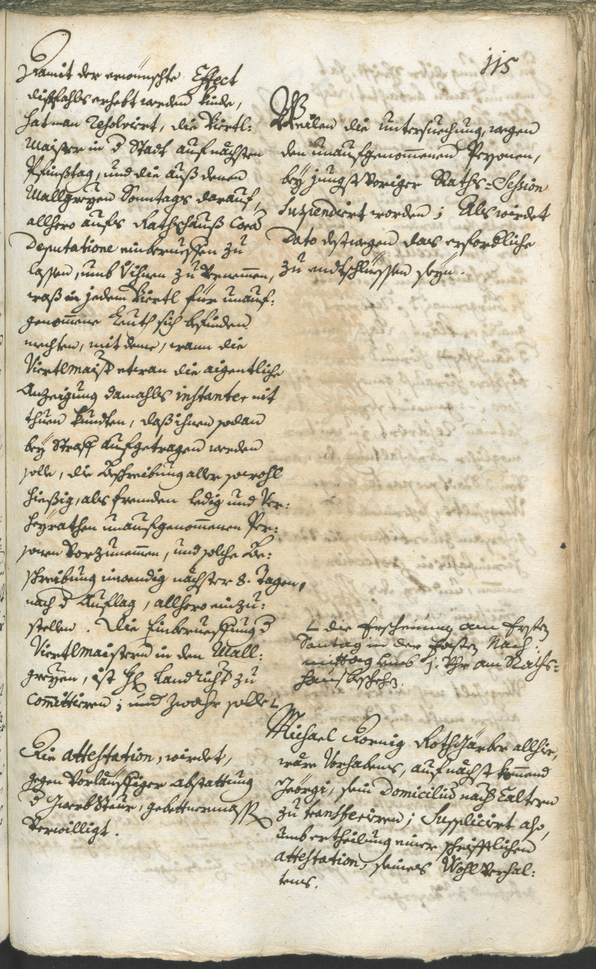 115
Damit der erwünschte Effect
dißfahls erhebt werden künde,
hat man resolviert, die Viertl:
Maister in d Stadt auf nächsten
Pfinßtag, und die auß denen
Mallgreyen Sonntags darauf,
allhero aufs Rathshauß Cora
Deputatione einberueffen zu
lassen, umb Ihnen zu benennen,
waß in jedem Viertl für unauf:
genommene Leuth sich befinden
mechten, mit deme, wann die
Viertlmaister etwan die aigentliche
Anzeigung damahls instanter nit
thuen kundten, daß ihnen sodan
bey Straff aufgetragen werden
solle, die Beschreibung aller sowohl
hießig, als frembden ledig und Ver:
heyrathen unaufgenommenen Per:
sonen vorzunemmen, und solche Be:
schreibung inwendig nächster 8. Tagen,
nach d Auflag, allhero einzu:
stellen. Die Einberueffung d
Viertlmaistern in den Mall:
greyen, ist H Landricht zu
Committieren; und zwahr solle
Weilen die Untersuechung, wegen
den unaufgenommenen Persohnen,
bey jüngst voriger Raths-Session
suspendirt worden; Als wirdet
Dato destwegen das erforderliche
zu entschlüssen seyn.
die Erscheinung am Ersten
Sontag in der Fasten Nach-
mittag umb 1. Uhr am Raths-
haus beschehen.
Die attestation, wirdet,
gegen vorläuffiger abstattung
d Gwerbsteur, gebettenermassen
verwilligt.
Michael Hornig Rothgärber allhier,
wäre Vorhabens, auf nächst komend
Georgi, sein Domicilium nach Caltern
zu transferiren; Supplicirt also,
umb ertheilung einer schrifftlichen
attestation, seines Wohlverhal-
tens.